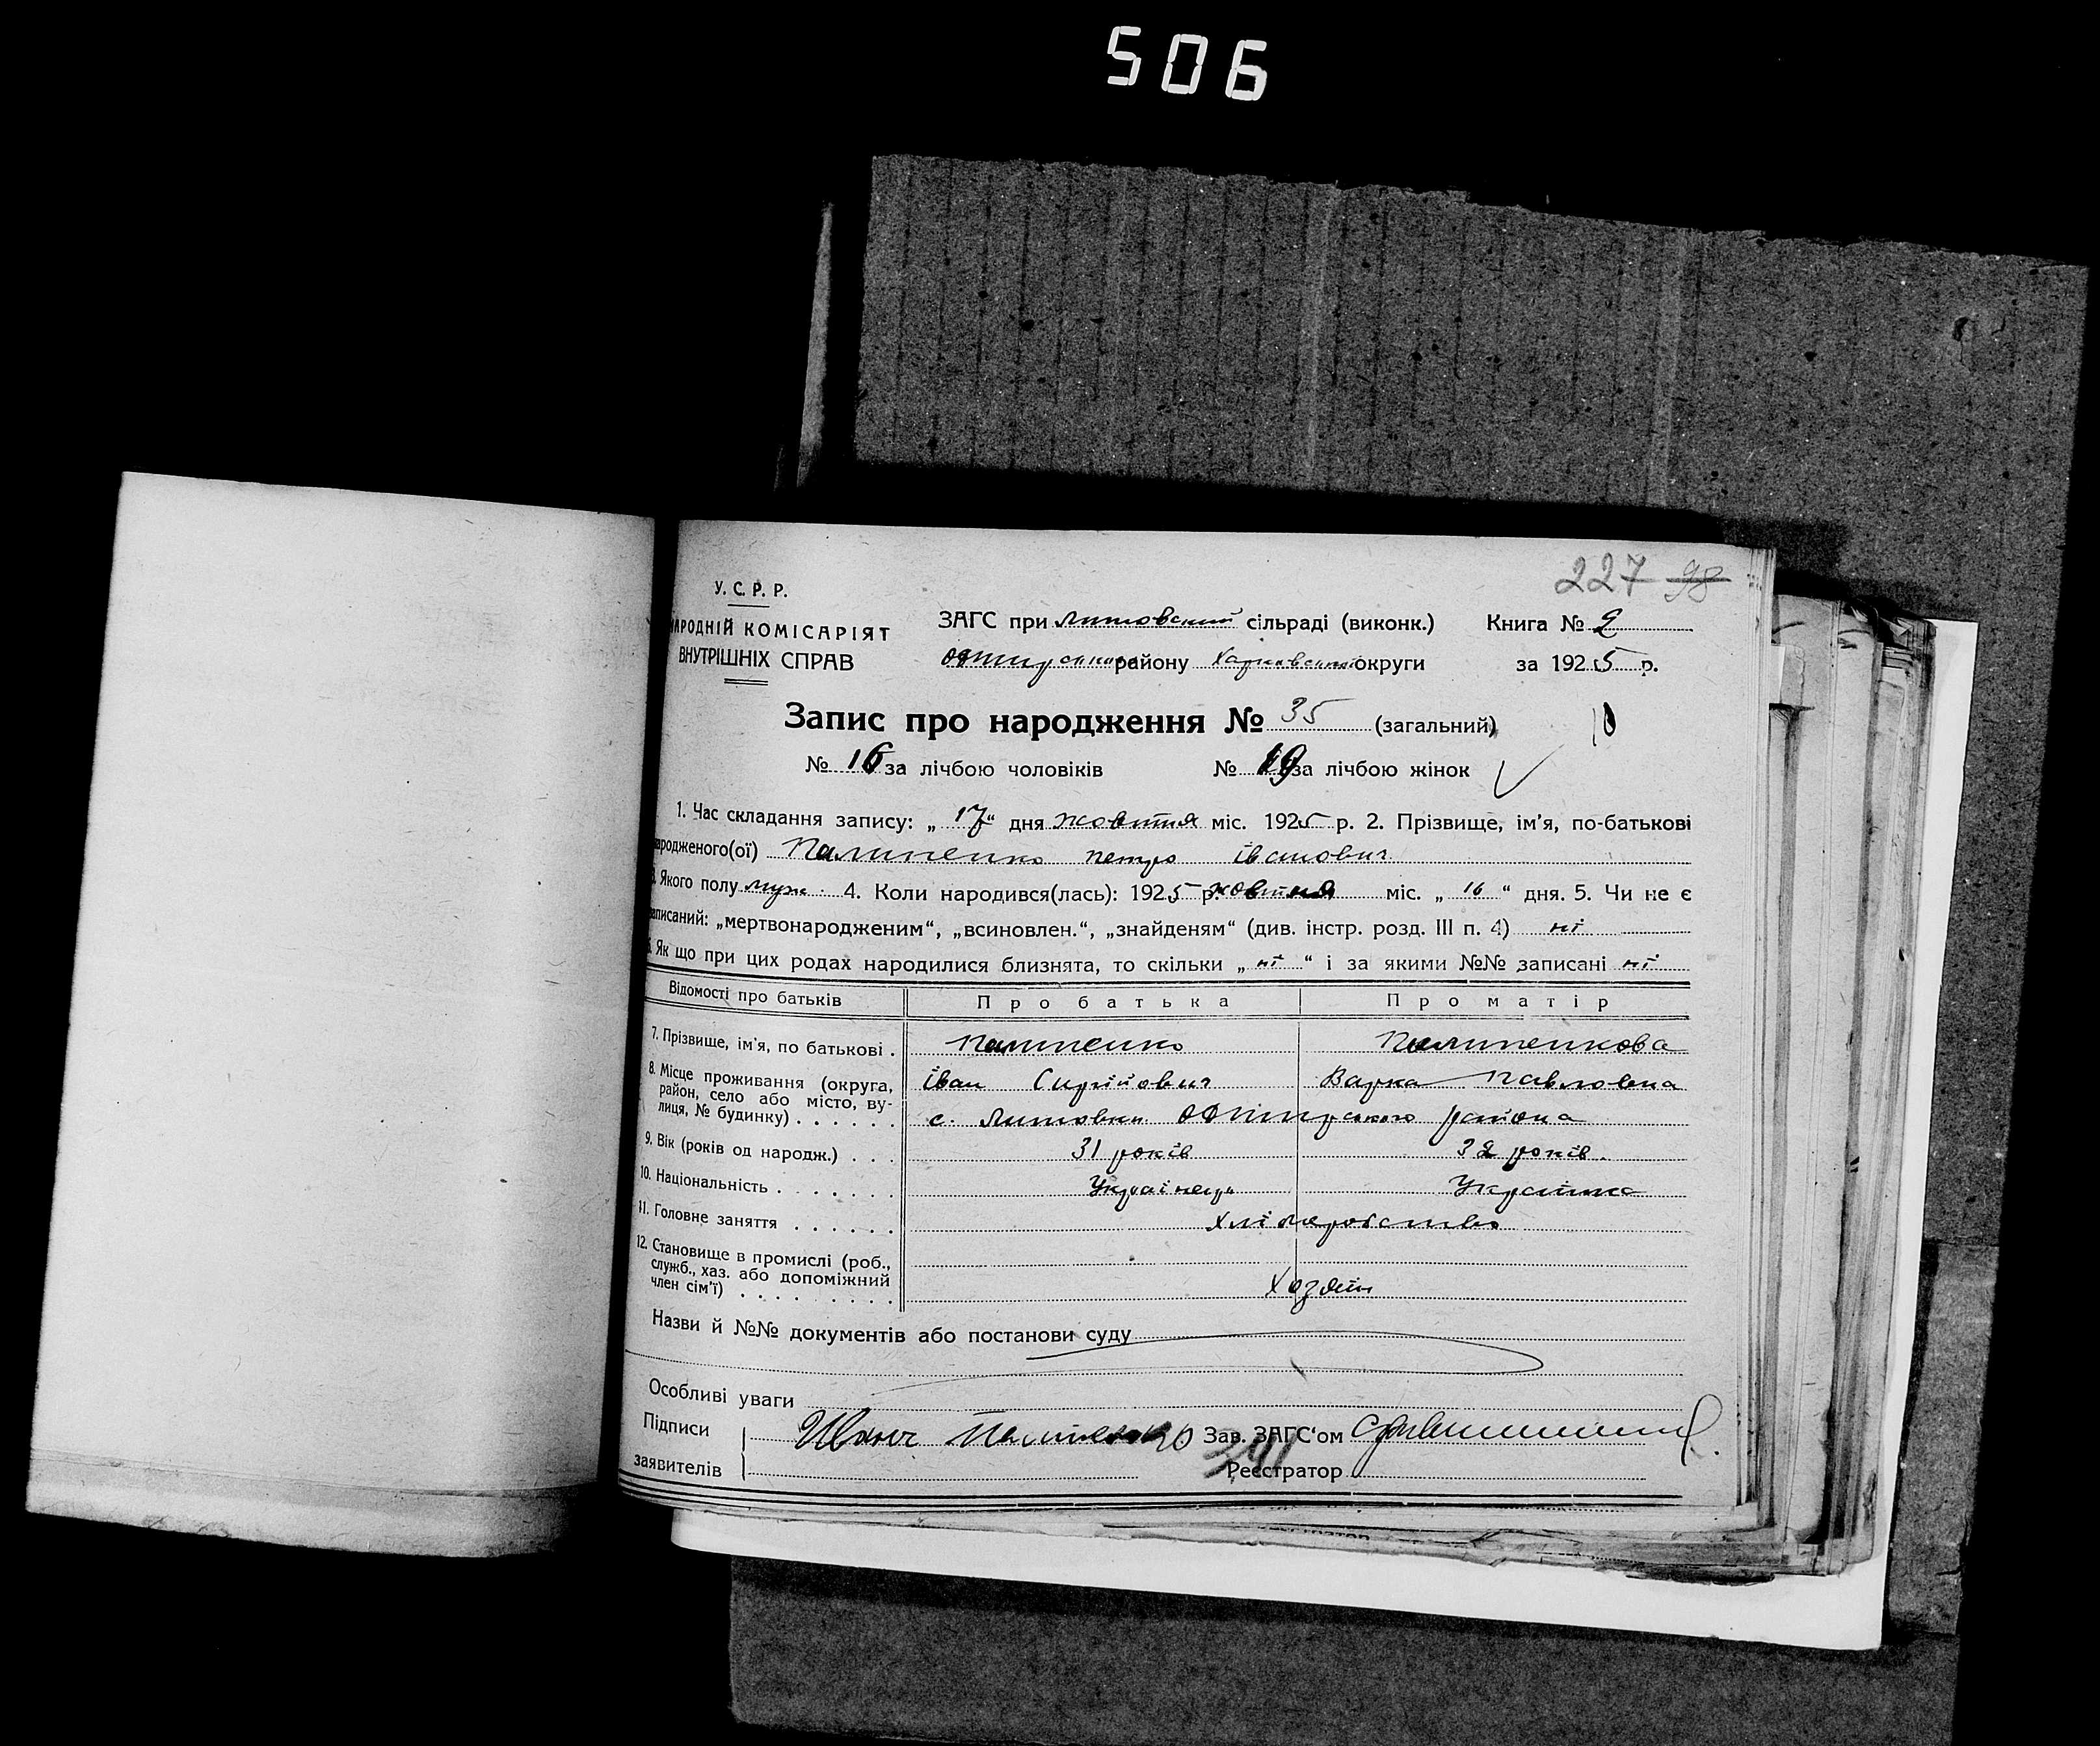 506
227 98
У. С. Р. Р.
НАРОДНІЙ КОМІСАРІЯТ
ВНУТРІШНІХ СПРАВ
ЗАГС при Литовський сільраді (виконк.) Книга № 2
району Харковської округи за 1925 р.
Запис про народження № 35 (загальний)
№ 16 за лічбою чоловіків № 19 за лічбою жінок
1. Час складання запису: „17“ дня жовтня міс. 1925 р. 2. Прізвище, ім'я, по-батькові
народженого(ої) Палиненко Петро Іванович
3. Якого полу муж. 4. Коли народився(лась): 1925 р. жовтня міс. „16“ дня. 5. Чи не є
записаний: „мертвонародженим“, „всиновлен.“, „знайденям“ (див. інстр. розд. III п. 4) ні
6. Як що при цих родах народилися близнята, то скільки „ні“ і за якими №№ записані ні
Відомості про батьків Про батька Про матір
7. Прізвище, ім'я, по батькові . Палиненко Палиненкова
Іван Сиргійович Варка Павловна
8. Місце проживання (округа, район, село або місто, вулиця, № будинку) . . . . . . с. Литовки района
9. Вік (років од народж.) . . . 31 років 32 років.
10. Національність . . . . . . Українець Українка
11. Головне заняття . . . . . . Хліборобство
12. Становище в промислі (роб., служб., хаз. або допоміжний член сім'ї) . . . . . . . . . Хозяїн
Назви й №№ документів або постанови суду
Особливі уваги
Підписи Иван Палиненко Зав. ЗАГС'ом
заявителів Реєстратор